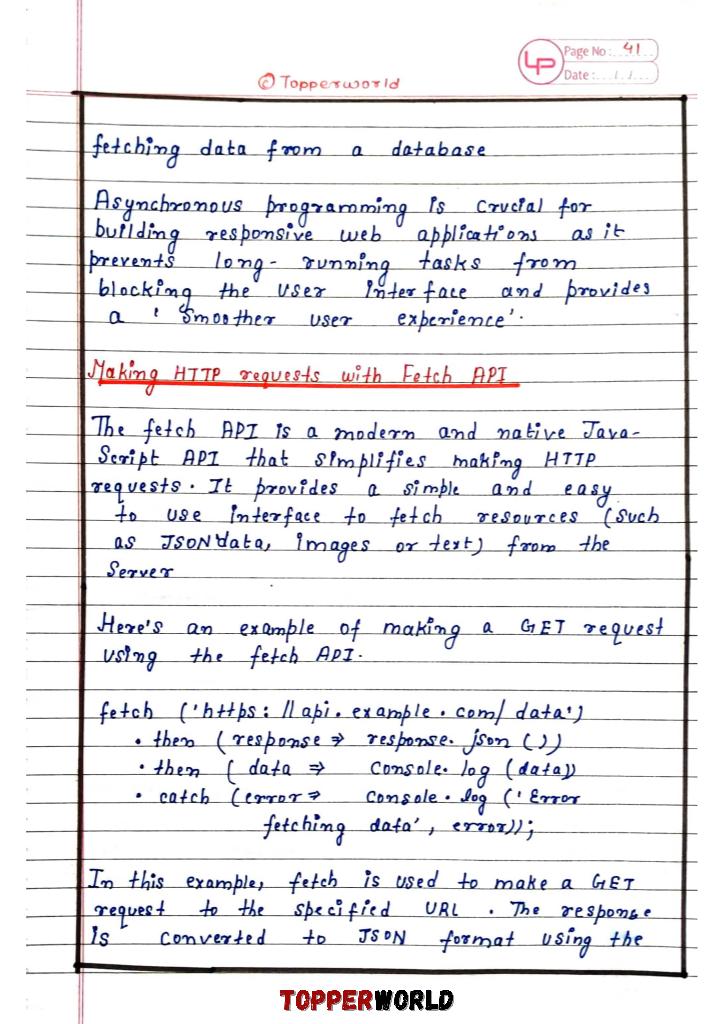 © Topperworld
LP
Page No: 41
Date: / /
fetching data from a database
Asynchronous programming is crucial for
building responsive web applications as it
prevents long- running tasks from
blocking the user interface and provides
a 'Smoother user experience'.
Making HTTP requests with Fetch API
The fetch API is a modern and native Java-
Script API that simplifies making HTTP
requests. It provides a simple and easy
to use interface to fetch resources (such
as JSON data, images or text) from the
Server
Here's an example of making a GET request
using the fetch API.
fetch ('https://api.example.com/data')
.then (response => response.json ())
.then ( data => Console.log (data))
.catch (error => Console.log ('Error
fetching data', error));
In this example, fetch is used to make a GET
request to the specified URL. The response
is converted to JSON format using the
TOPPERWORLD